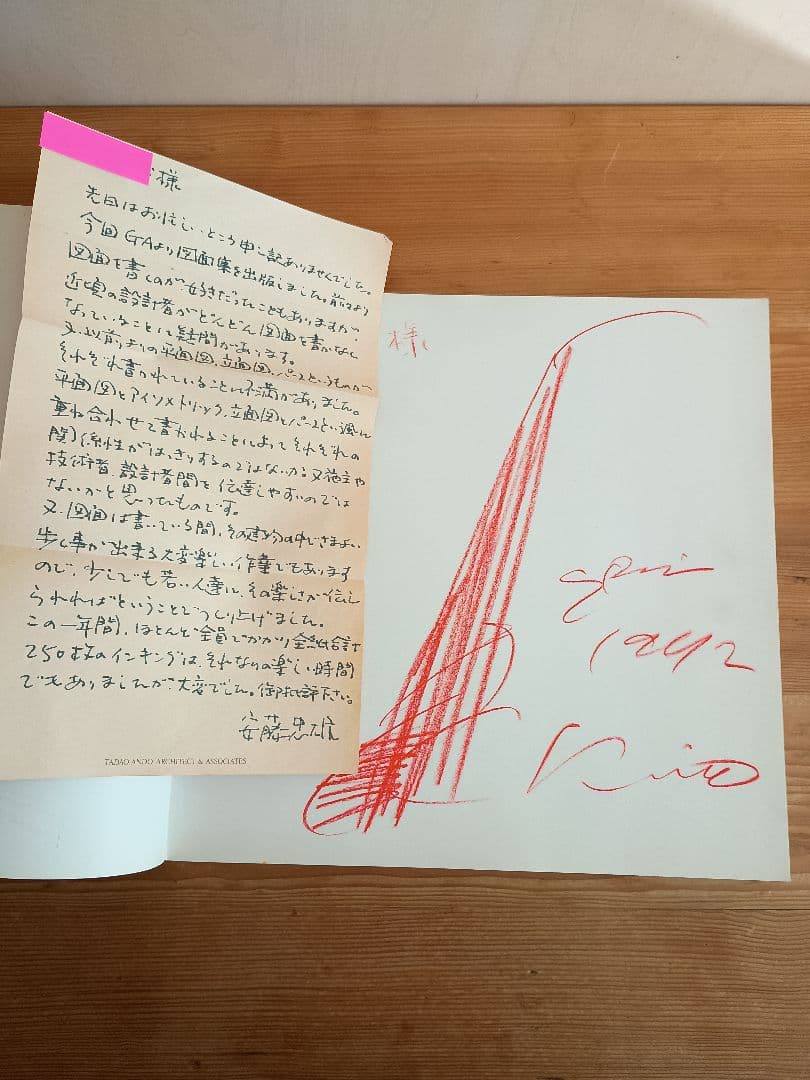 様
先日はお忙しいところ申し訳ありませんでした。
今回GAより図面集を出版しました。前々より
図面を書くのが好きだったこともありますが、
近頃の設計者がどんどん図面を書かなく
なっていることに疑問があります。
又、以前よりの平面図、立面図、パースというものが
それぞれ書かれていることに不満がありました。
平面図とアイソメトリック、立面図とパースという風に
重ね合わせて書かれることによってそれぞれの
関係性がはっきりするのではないか又施主や
技術者、設計者間を伝達しやすいのでは
ないかと思ったものです。
又、図面は書いている間、その建物の中でさまよい
歩く事が出来る大変楽しい作業でもあります
ので、少しでも若い人達に、その楽しさが伝え
られればということでつくり上げました。
この一年間、ほとんど全員でかかり全紙合計で
250枚のインキングは、それなりの楽しい時間
でもありましたが、大変でした。御批評下さい。
安藤忠雄
TADAO ANDO ARCHITECT & ASSOCIATES
様
1992